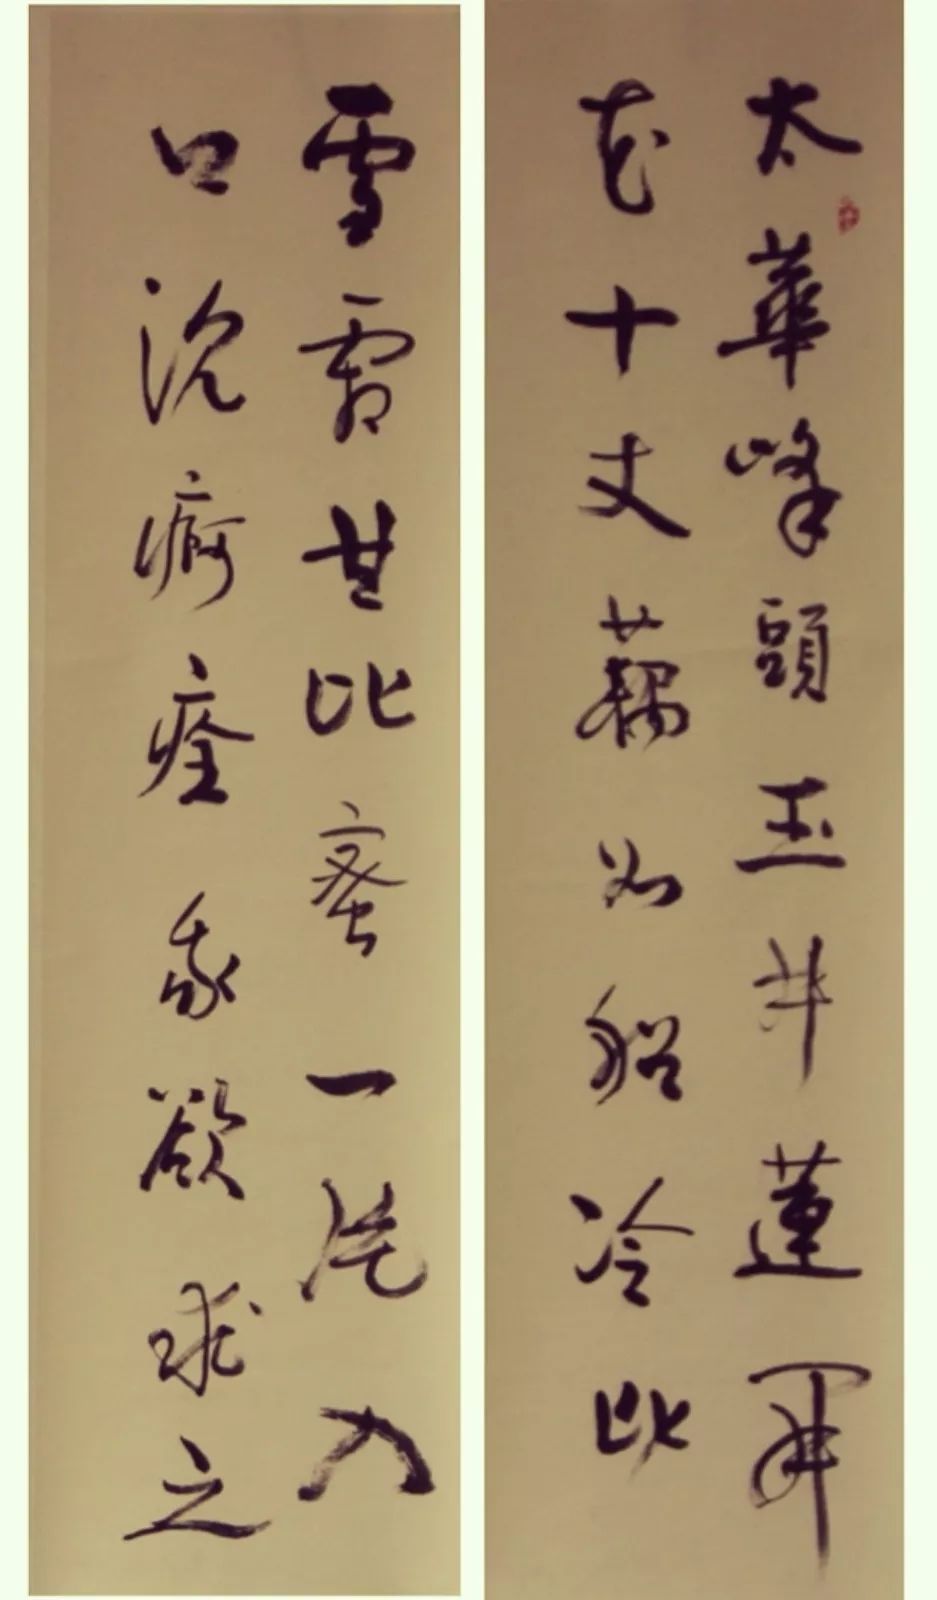 太華峰頭玉井蓮開
花十丈藕如船冷比
雪霜甘比蜜一片入
口沉痾痊我欲求之